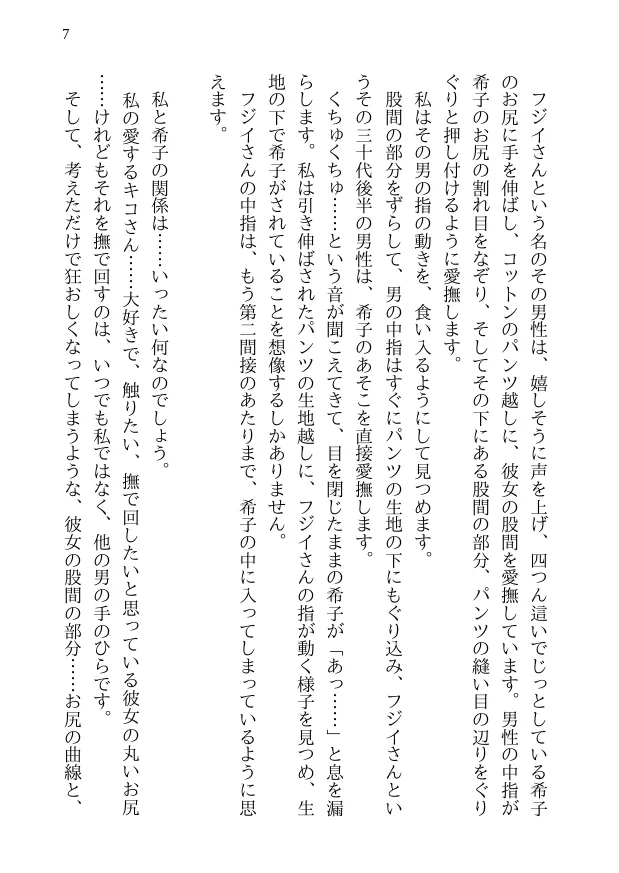 7
フジイさんという名のその男性は、嬉しそうに声を上げ、四つん這いでじっとしている希子
のお尻に手を伸ばし、コットンのパンツ越しに、彼女の股間を愛撫しています。男性の中指が
希子のお尻の割れ目をなぞり、そしてその下にある股間の部分、パンツの縫い目の辺りをぐり
ぐりと押し付けるように愛撫します。
私はその男の指の動きを、食い入るようにして見つめます。
股間の部分をずらして、男の中指はすぐにパンツの生地の下にもぐり込み、フジイさんとい
うその三十代後半の男性は、希子のあそこを直接愛撫します。
くちゅくちゅ……という音が聞こえてきて、目を閉じたままの希子が「あっ……」と息を漏
らします。私は引き伸ばされたパンツの生地越しに、フジイさんの指が動く様子を見つめ、生
地の下で希子がされていることを想像するしかありません。
フジイさんの中指は、もう第二間接のあたりまで、希子の中に入ってしまっているように思
えます。
私と希子の関係は……いったい何なのでしょう。
私の愛するキコさん……大好きで、触りたい、撫で回したいと思っている彼女の丸いお尻
……けれどもそれを撫で回すのは、いつでも私ではなく、他の男の手のひらです。
そして、考えただけで狂おしくなってしまうような、彼女の股間の部分……お尻の曲線と、